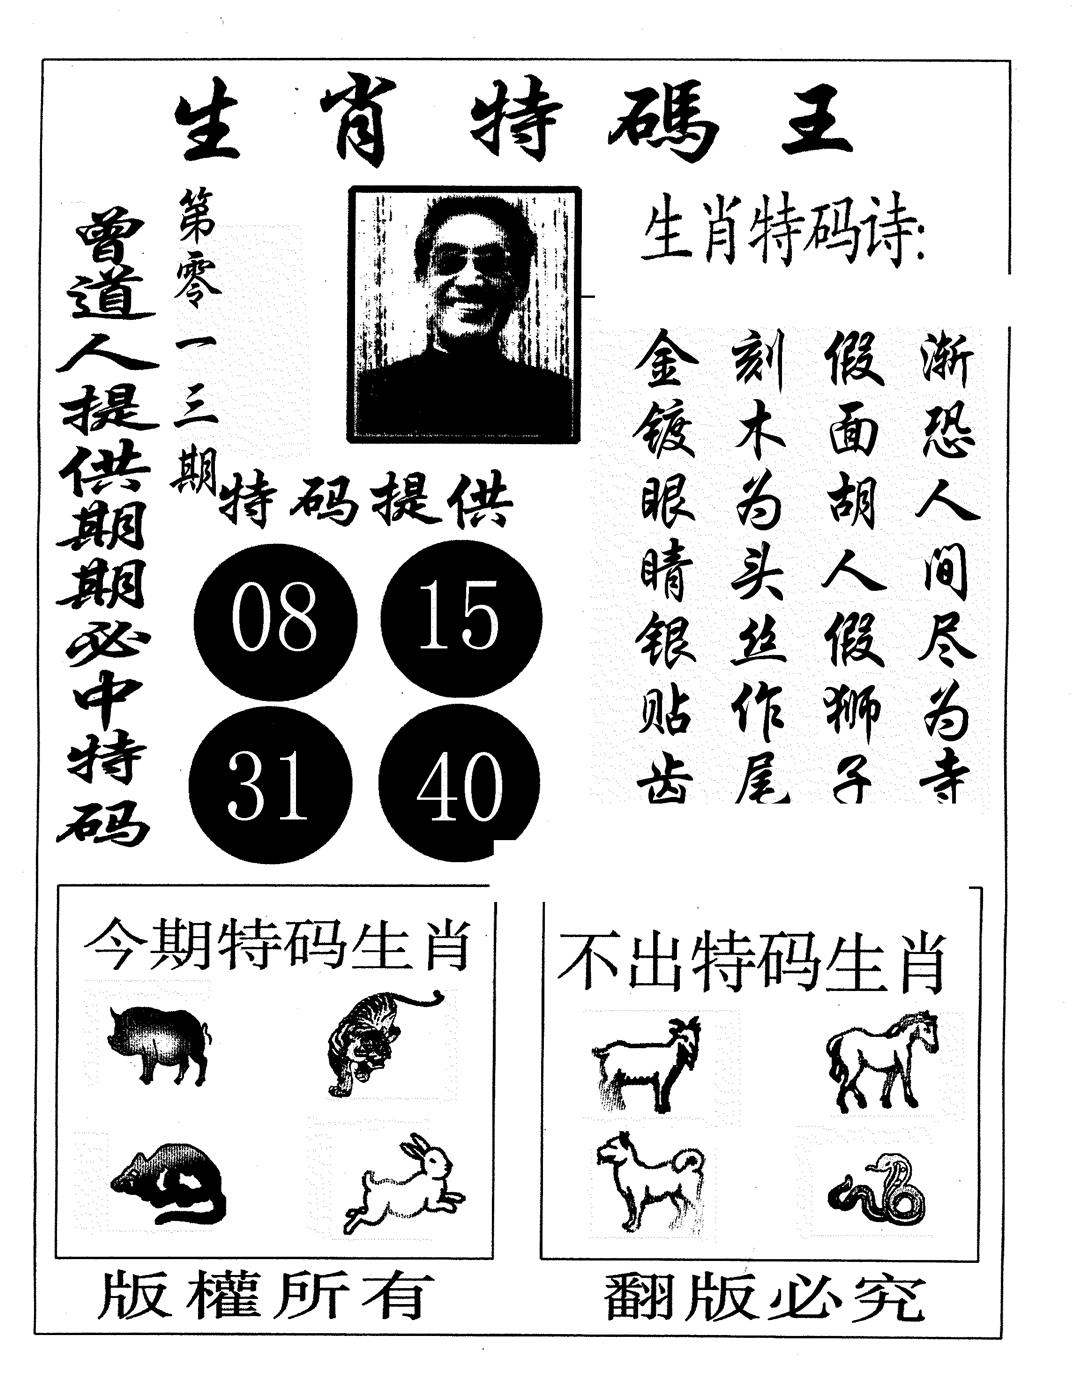 生肖特碼王
曾道人提供期期必中特码
第零一三期
生肖特码诗:
渐恐人间尽为寺
假面胡人假狮子
刻木为头丝作尾
金镀眼睛银贴齿
特码提供
08 15
31 40
今期特码生肖
不出特码生肖
版權所有
翻版必究